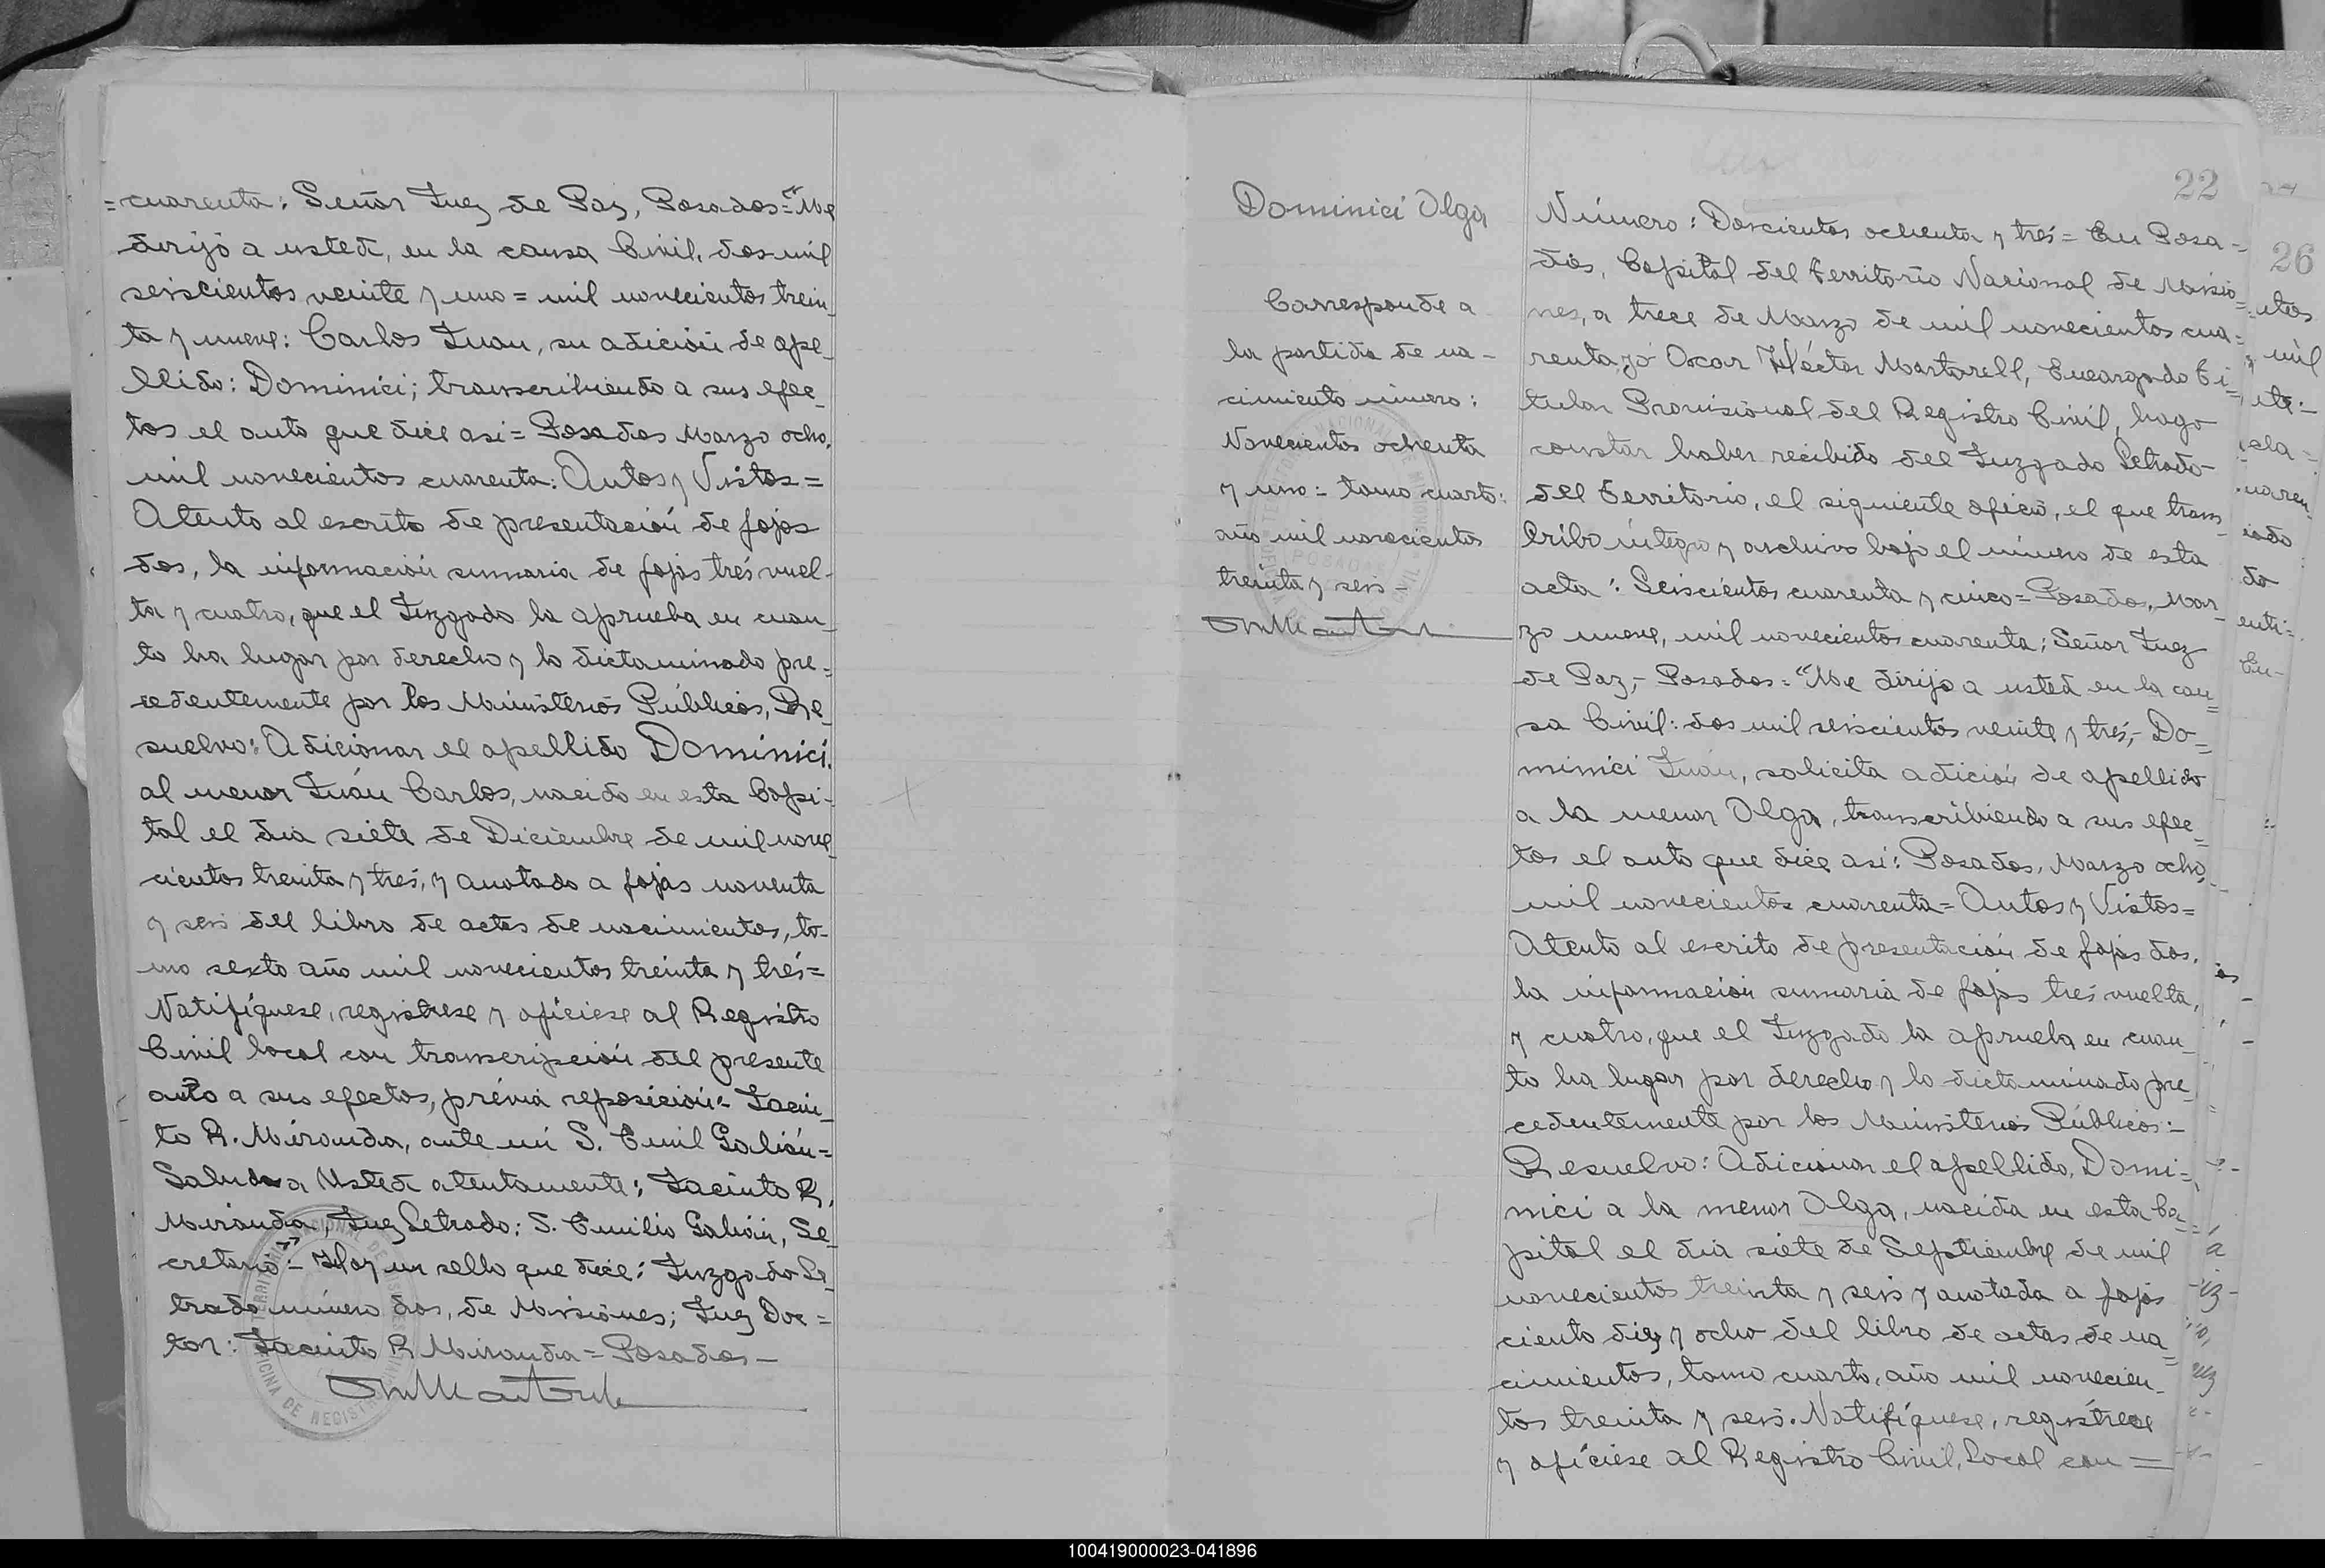 =cuarenta: Señor Juez de Paz, Posadas="Me
dirijo a usted, en la causa Civil, dos mil
seiscientos veinte y uno = mil novecientos trein_
ta y nueve: Carlos Juan, su adición de ape_
llido: Dominici; transcribiendo a sus efec_
tos el auto que dice asi = Posadas Marzo ocho,
mil novecientos cuarenta: Autos y Vistos =
Atento al escrito de presentación de fojas
dos, la información sumaria de fojas tres vuel-
ta y cuatro, que el Juzgado la aprueba en cuan_
to ha lugar por derecho y lo dictaminado pre=
cedentemente por los Ministerios Públicos, Re_
suelvo: Adicionar el apellido Dominici.
al menor Juan Carlos, nacido en esta Capi-
tal el dia siete de Diciembre de mil nove_
cientos treinta y tres, y anotado a fojas noventa
y seis del libro de actas de nacimientos, to-
mo sexto año mil novecientos treinta y tres=
Notifíquese, registrese y ofíciese al Registro
Civil local con transcripción del presente
auto a sus efectos, prévia reposición:- Jacin_
to R. Miranda, ante mi S. Emil Galián=
Saluda a Usted atentamente: Jacinto R,
Miranda, Juez Letrado: S. Emilio Galián, Se_
cretario":- Hay un sello que dice: Juzgado Le_
trado número dos, de Misiones; Juez Doc=
tor: Jacinto R Miranda = Posadas -
22
Dominici Olga
Corresponde a
la partida de na-
cimiento número:
Novecientos ochenta
y uno = tomo cuarto:
año mil novecientos
treinta y seis =
Número: Doscientos ochenta y tres = En Posa-
das, Capital del Territorio Nacional de Misio=
nes, a trece de Marzo de mil novecientos cua=
renta, yó Oscar Héctor Martorell, Encargado Ti_
tular Provisional del Registro Civil, hago
constar haber recibido del Juzgado Letrado-
del Territorio, el siguiente oficio, el que trans_
cribo íntegro y archivo bajo el número de esta
acta: Seiscientos cuarenta y cinco = Posadas, Mar_
zo nueve, mil novecientos cuarenta; Señor Juez
de Paz,- Posadas = "Me dirijo a usted en la cau=
sa Civil: dos mil seiscientos veinte y tres,- Do=
minici Juan, solicita adición de apellido
a la menor Olga, transcribiendo a sus efec_
tos el auto que dice asi: Posadas, Marzo ocho,
mil novecientos cuarenta = Autos y Vistos=
Atento al escrito de presentación de fojas dos,
la información sumaria de fojas tres vuelta,
y cuatro, que el Juzgado la aprueba en cuan_
to ha lugar por derecho y lo dictaminado pre_
cedentemente por los Ministerios Públicos:-
Resuelvo: Adicionar el apellido, Domi=
nici a la menor Olga, nacida en esta Ca=
pital el dia siete de Septiembre de mil
novecientos treinta y seis y anotada a fojas
ciento diez y ocho del libro de actas de na=
cimientos, tomo cuarto, año mil novecien_
tos treinta y seis. Notifíquese, regístrese
y ofíciese al Registro Civil, Local con =
26
100419000023-041896